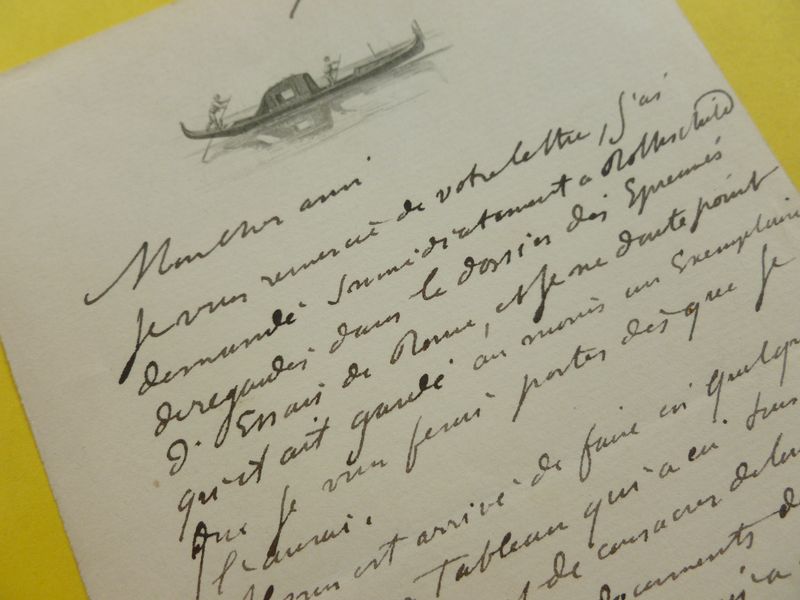 Mon cher ami
Je vous remercie de votre lettre, J'ai
demandé Immédiatement a Rothschild
de regarder dans le dossier des Epreuves
d'Essais de Rome, et Je ne doute point
qu'il ait gardé au moins un Exemplaire
que Je vous ferai porter dès que Je
l'aurai.
est arrivé de faire ici quelqu
Tableau qui a eu
de consacrer
documents d